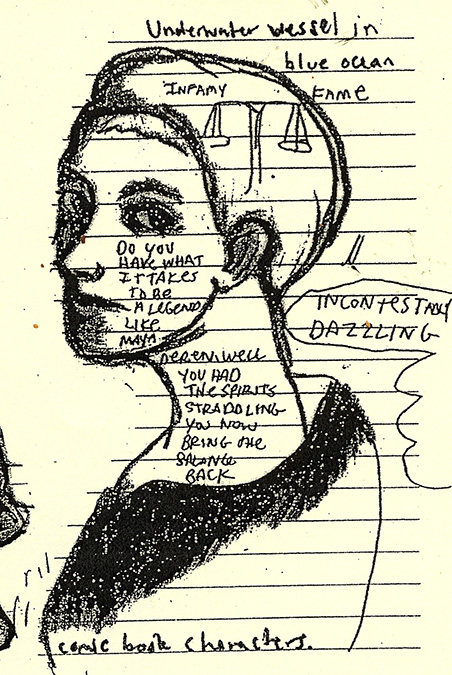 Underwater vessel in
blue ocean
INFAMY FAME
DO YOU
HAVE WHAT
IT TAKES
TO BE
A LEGEND
LIKE
MAYA
DEREN WELL
YOU HAD
THE SPIRITS
STRADDLING
YOU NOW
BRING THE
BALANCE
BACK
INCONTESTABLY
DAZZLING
comic book characters.